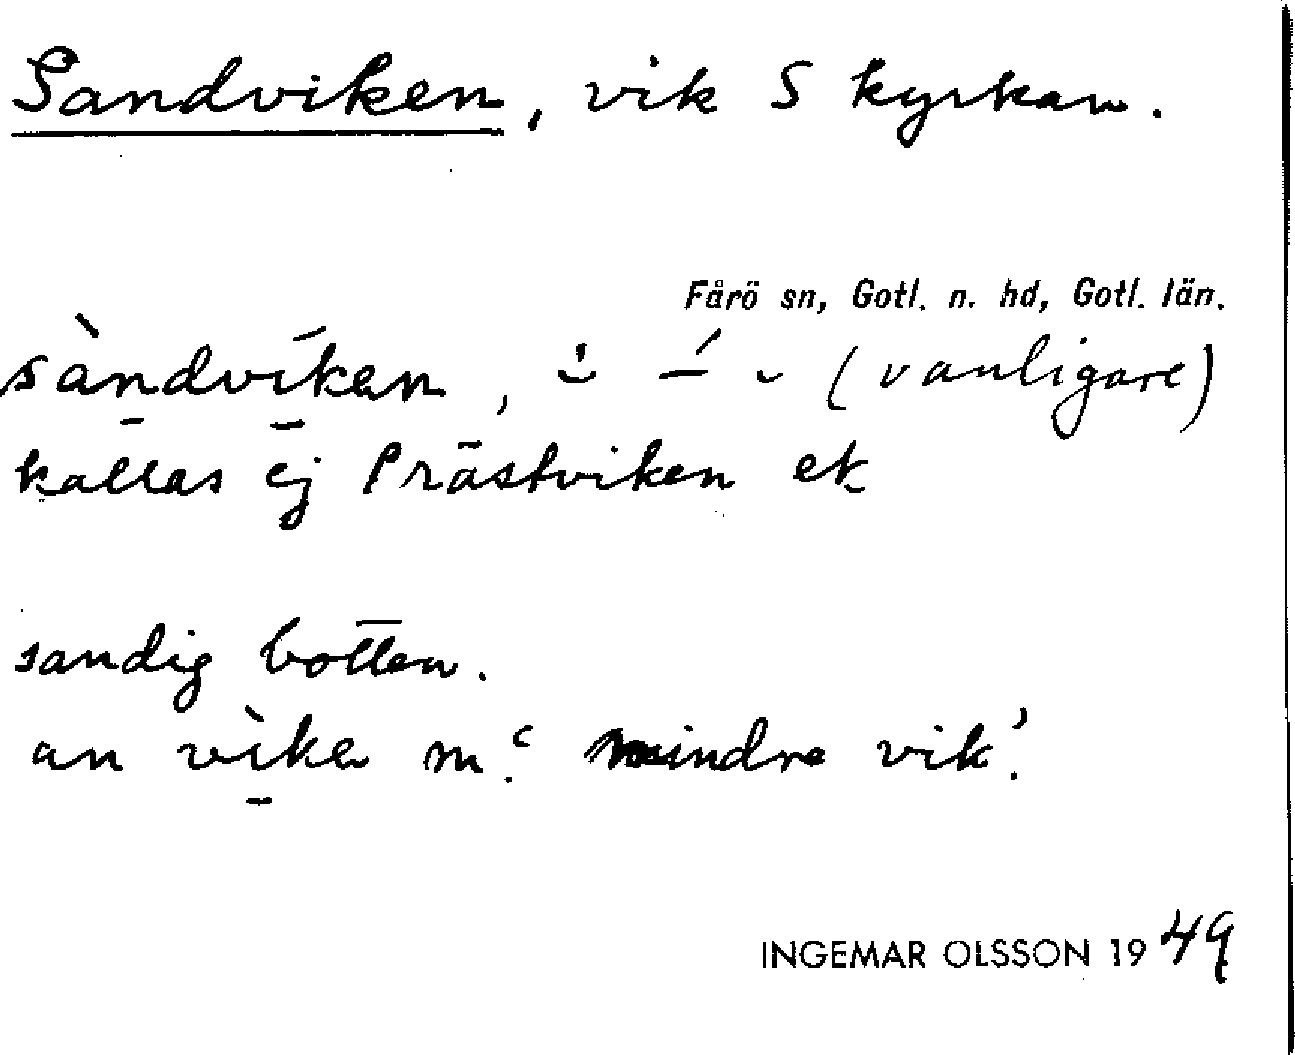 Sandviken, vik S kyrkan.
Fårö sn, Gotl. n. hd, Gotl. län.
sàndvīken, (vanligare)
kallas ej Prästviken ek
sandig botten.
an vìka m. ‘mindre vik’.
INGEMAR OLSSON 1949